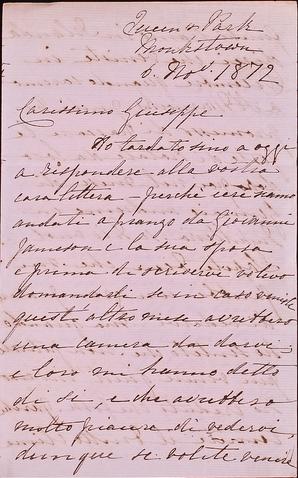 Queen's Park
Monkstown
6. Nov. 1872
Carissimo Giuseppe
Ho tardato sino a oggi
a rispondere alla vostra
cara littera – perche ieri siamo
andati a pranzo da Giovanni
Jameson e la sua sposa
e prima di scrivervi volevo
domandarli se in caso venite
quest altro mese avrebbero
una camera da darvi,
e loro mi hanno detto
di si, e che avrebbero
molto piacere di vedervi,
dunque se volete venire